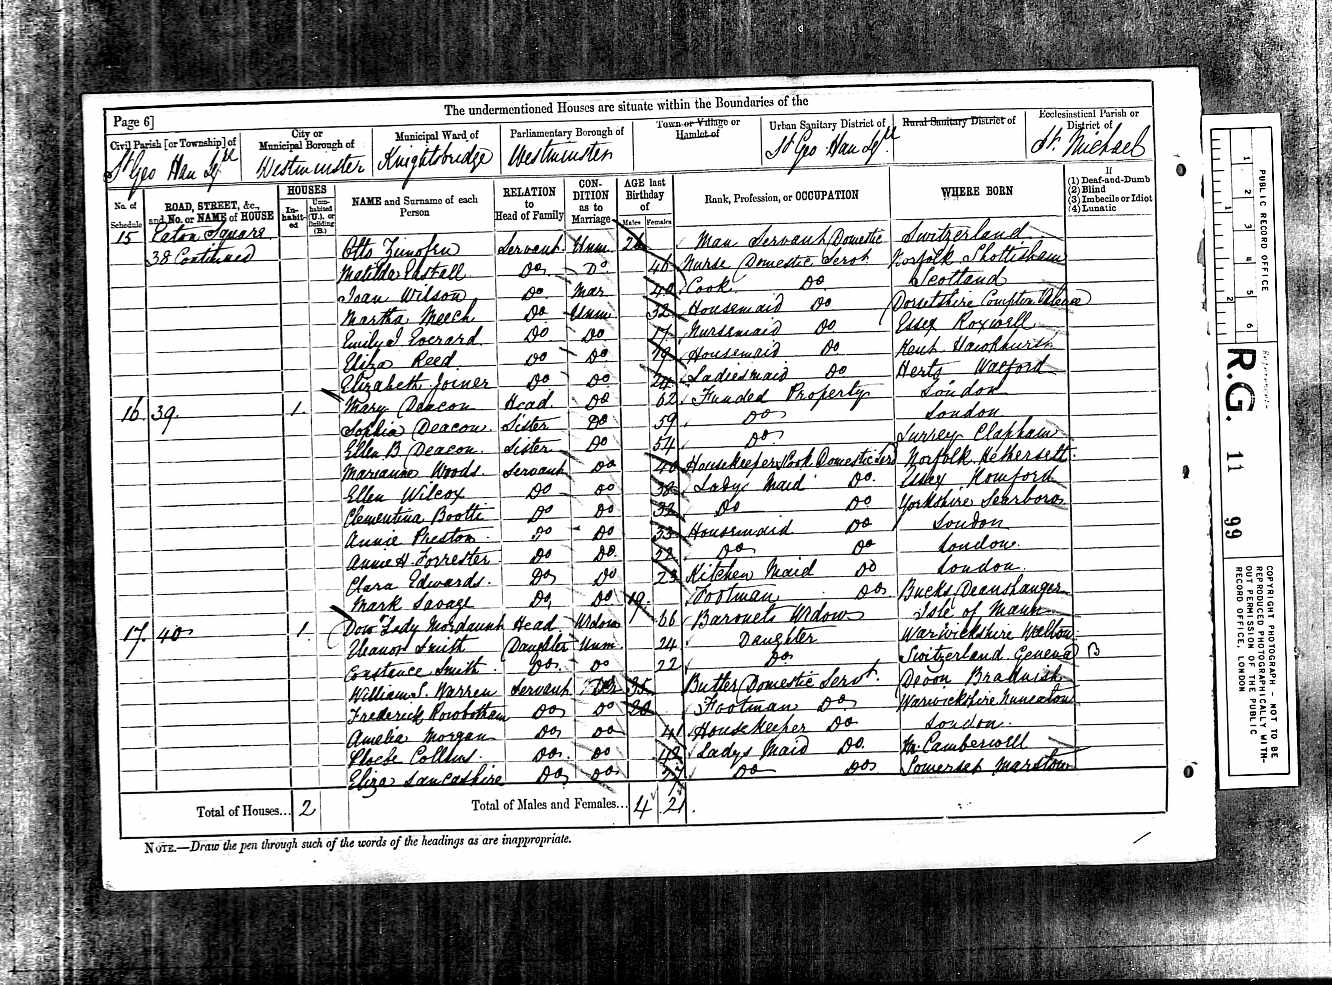 The undermentioned Houses are situate within the Boundaries of the
Page 6]
Civil Parish [or Township] of
St Geo Han Sqre
City or
Municipal Borough of
Westminster
Municipal Ward of
Knightsbridge
Parliamentary Borough of
Westminster
Town or Village or
Hamlet of
Urban Sanitary District of
St Geo Han Sqre
Rural Sanitary District of
Ecclesiastical Parish or
District of
St. Michael
No. of Schedule
ROAD, STREET, &c., and No. or NAME of HOUSE
HOUSES
In-habit-ed
Unin-habited (U.), or Building (B.)
NAME and Surname of each Person
RELATION to Head of Family
CON-DITION as to Marriage
AGE last Birthday of
Males
Females
Rank, Profession, or OCCUPATION
WHERE BORN
If
(1) Deaf-and-Dumb
(2) Blind
(3) Imbecile or Idiot
(4) Lunatic
15 Eaton Square
38 Continued Otto Servant Unm Man Servant Domestic Switzerland
Matilda Eastall Do Do 46 Nurse Domestic Servt Norfolk Shottisham
Joan Wilson Do Mar 40 Cook Do Scotland
Martha Meech Do Unm 32 Housemaid Do Dorsetshire Compton
Emily J Everard Do Do 17 Nursemaid Do Essex Roxwell
Eliza Reed Do Do 19 Housemaid Do Kent Hawkhurst
Elizabeth Joiner Do Do 24 Ladiesmaid Do Herts Watford
16 39 1 Mary Deacon Head Do 62 Funded Property London
Sophia Deacon Sister Do 59 Do London
Ellen B Deacon Sister Do 54 Do Surrey Clapham
Marianne Woods Servant Do 40 Housekeeper Cook Domestic Ser Norfolk Hethersett
Ellen Wilcox Do Do 38 Lady Maid Do Essex Romford
Clementina Do Do 32 Do Do Yorkshire Scarboro
Annie Preston Do Do 33 Housemaid Do London
Annie H Forrester Do Do 22 Do Do London
Clara Edwards Do Do 23 Kitchen Maid Do London
Mark Savage Do Do 19 Footman Do Bucks Deanshanger
17 40 1 Dow Lady Mordaunt Head Widow 66 Baronets Widow Isle of Mann
Eleanor Smith Daughter Unm 24 Daughter Warwickshire Walton
Constance Smith Do Do 22 Do Switzerland Geneva B
William S. Warren Servant 35 Butler Domestic Servt Devon Bradnish
Frederick Rowbotham Do Do 28 Footman Do Warwickshire Nuneaton
Amelia Morgan Do Do 41 Housekeeper Do London
Phoebe Collins Do Do Ladys Maid Do M. Camberwell
Eliza Lancashire Do Do 27 Do Do Somerset Marstow
Total of Houses... 2
Total of Males and Females... 4 21
NOTE.—Draw the pen through such of the words of the headings as are inappropriate.
PUBLIC RECORD OFFICE
1 2 3 4 5 6
1 2
Reference:-
R.G. 11 99
COPYRIGHT PHOTOGRAPH - NOT TO BE
REPRODUCED PHOTOGRAPHICALLY WITH-
OUT PERMISSION OF THE PUBLIC
RECORD OFFICE, LONDON